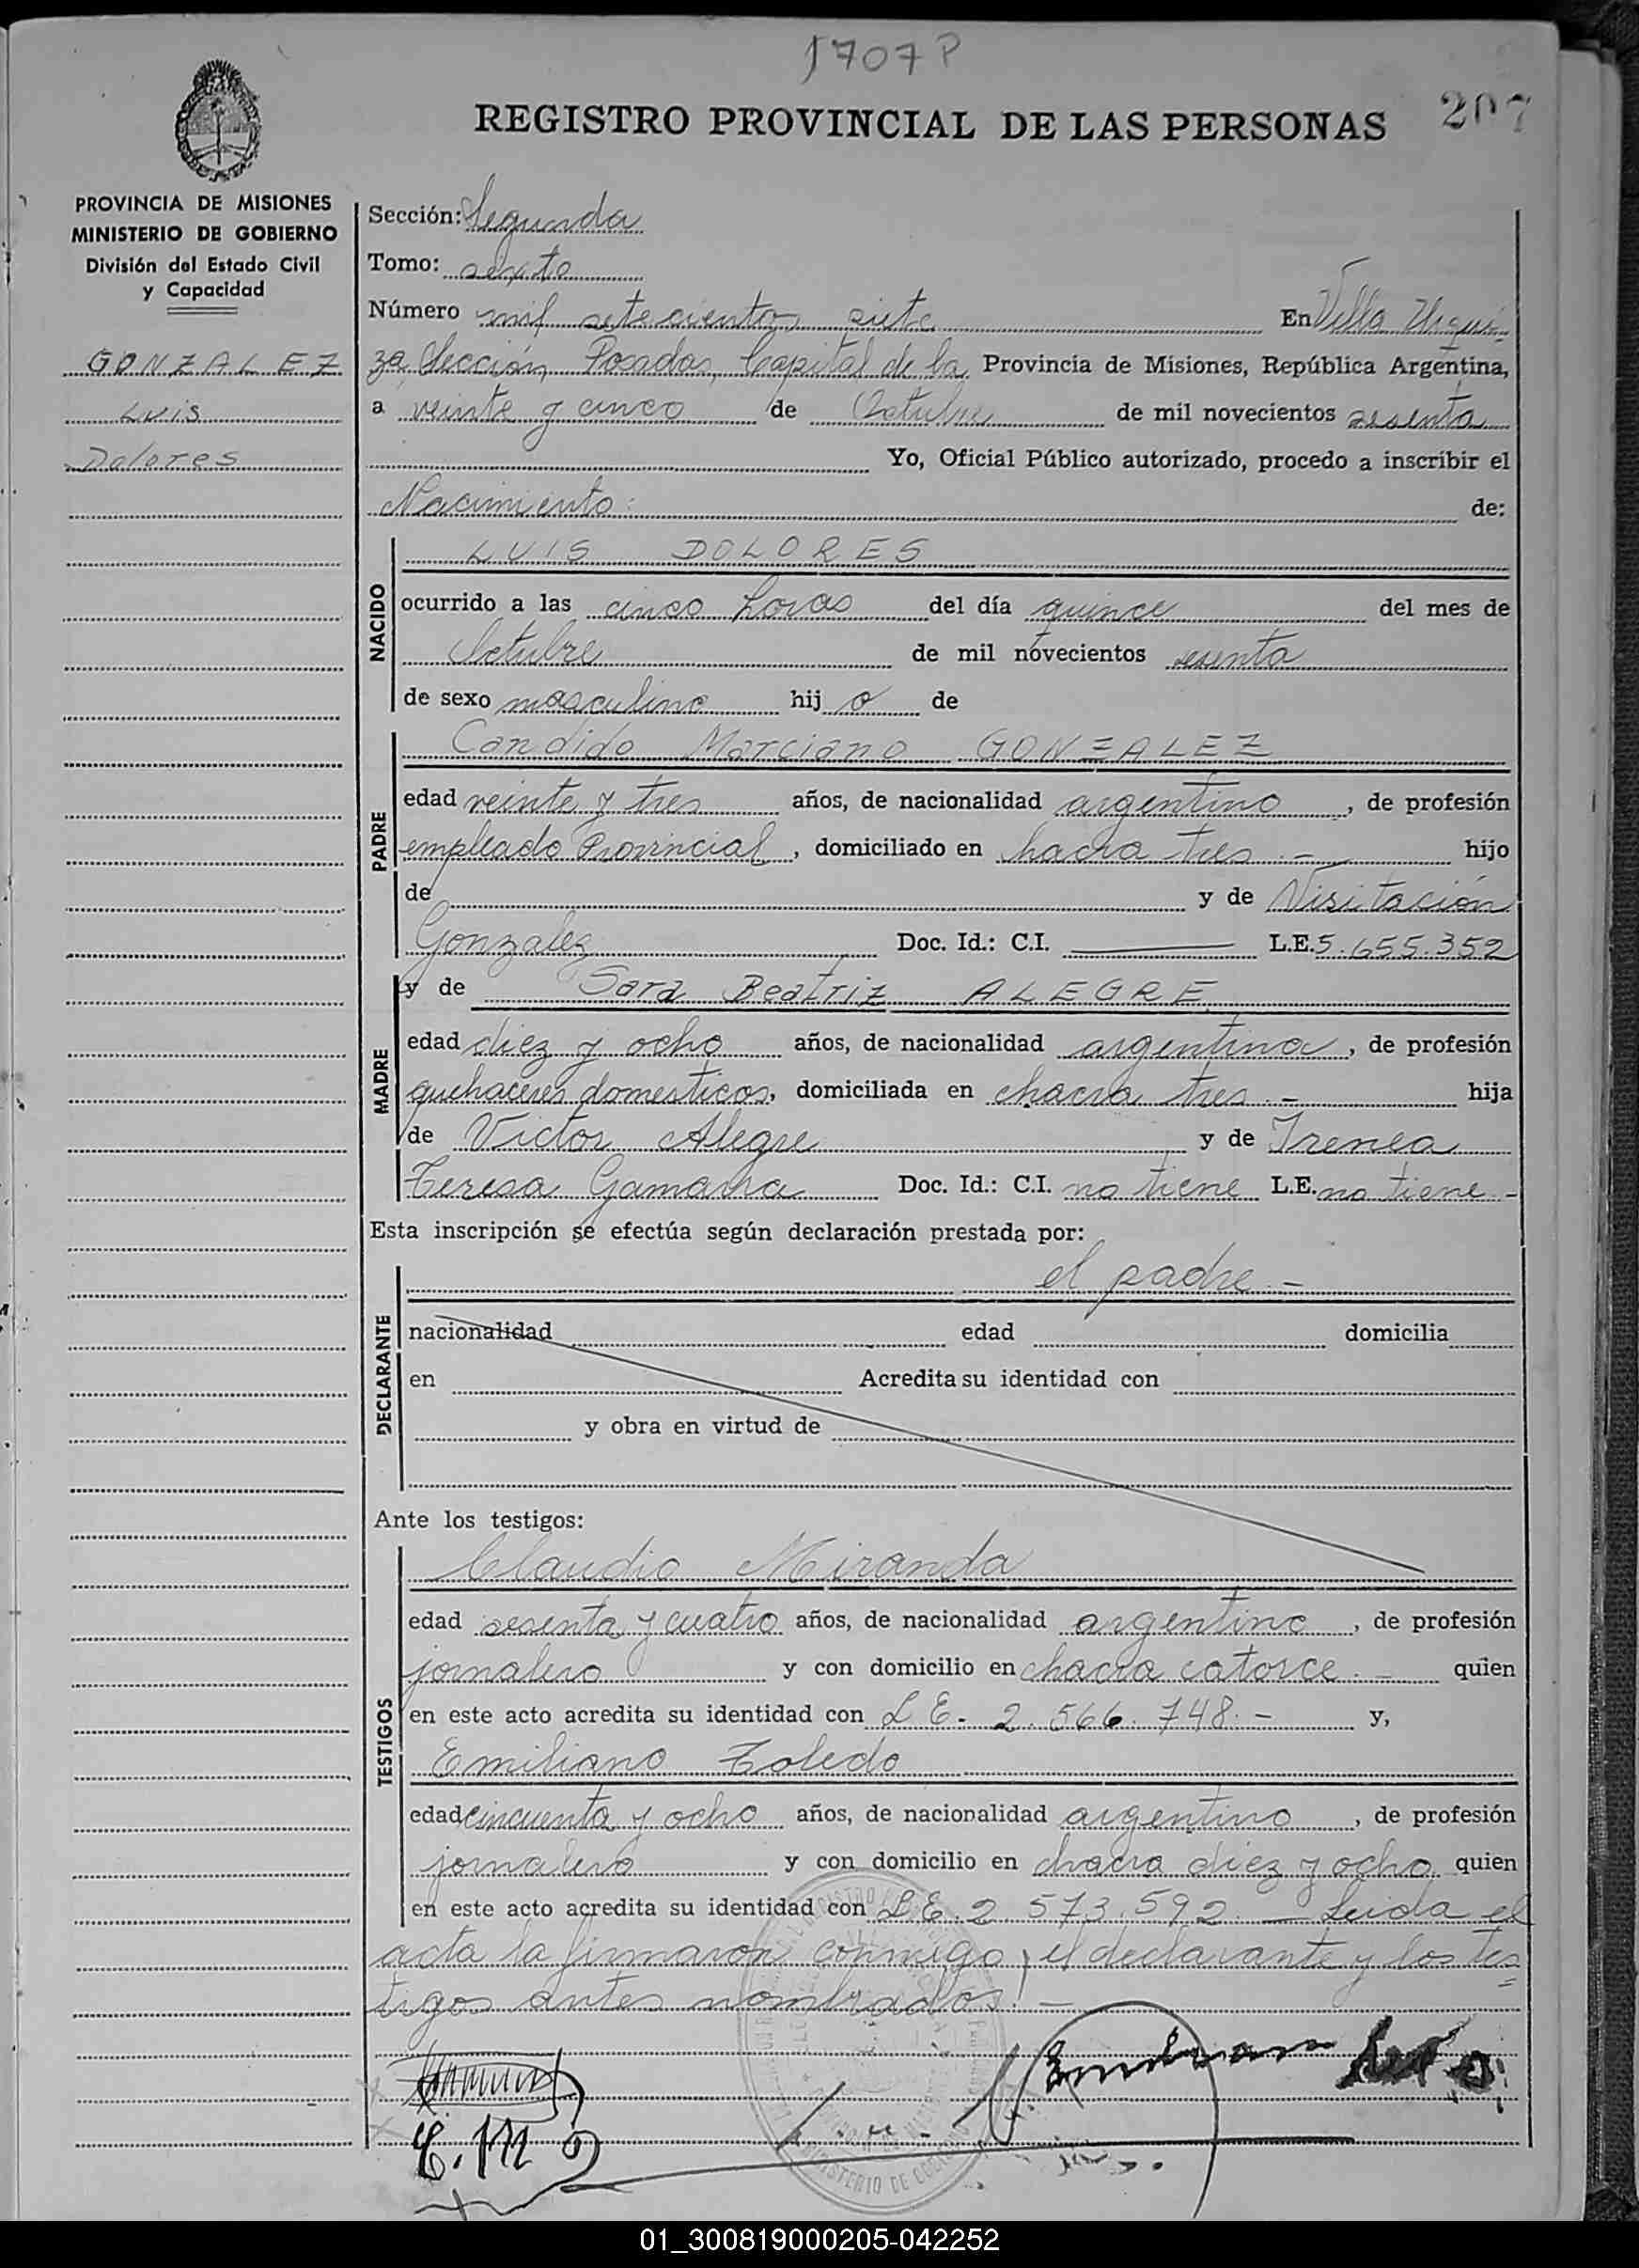 1707 P
REGISTRO PROVINCIAL DE LAS PERSONAS 207
PROVINCIA DE MISIONES
MINISTERIO DE GOBIERNO
División del Estado Civil
y Capacidad
GONZALEZ
Luis
Dolores
Sección: Segunda
Tomo: sexto
Número mil setecientos siete En Villa Urqui-
za, Sección, Posadas, Capital de la Provincia de Misiones, República Argentina,
a veinte y cinco de Octubre de mil novecientos sesenta
Yo, Oficial Público autorizado, procedo a inscribir el
Nacimiento: de:
NACIDO
LUIS DOLORES
ocurrido a las cinco horas del día quince del mes de
Octubre de mil novecientos sesenta
de sexo masculino hij o de
PADRE
Candido Marciano GONZALEZ
edad veinte y tres años, de nacionalidad argentino, de profesión
empleado Provincial, domiciliado en chacra tres.- hijo
de y de Visitación
Gonzalez Doc. Id.: C.I. L.E. 5.655.352
MADRE
y de Sara Beatriz ALEGRE
edad diez y ocho años, de nacionalidad argentina, de profesión
quehaceres domesticos, domiciliada en chacra tres.- hija
de Victor Alegre y de Irenea
Teresa Gamarra Doc. Id.: C.I. no tiene L.E. no tiene.-
Esta inscripción se efectúa según declaración prestada por:
DECLARANTE
el padre.-
nacionalidad edad domicilia
en Acredita su identidad con
y obra en virtud de
Ante los testigos:
TESTIGOS
Claudio Miranda
edad sesenta y cuatro años, de nacionalidad argentino, de profesión
jornalero y con domicilio en chacra catorce.- quien
en este acto acredita su identidad con L.E. 2.566.748.- y,
Emiliano Toledo
edad cincuenta y ocho años, de nacionalidad argentino, de profesión
jornalero y con domicilio en chacra diez y ocho quien
en este acto acredita su identidad con L.E. 2.573.592. — Leida el
acta la firmaron conmigo, el declarante y los tes=
tigos antes nombrados.! —
C. M
01_300819000205-042252